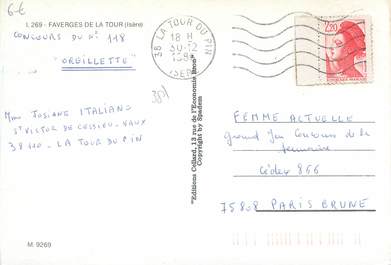 6-€
I. 269 - FAVERGES DE LA TOUR (Isère)
CONCOURS DU N° 118
"OREILLETTE"
Mme JOSIANE ITALIANO
St VICTOR DE CESSIEU - VAUX
38110 - LA TOUR DU PIN
M. 9269
"Editions Cellard, 13 rue de l'Economie Bron"
Copyright by Spadem
38 LA TOUR DU PIN
18 H
30-12
ISERE
2,20
FEMME ACTUELLE
Grand Jeu Concours de la
semaine
Cédex 866
75808 PARIS BRUNE